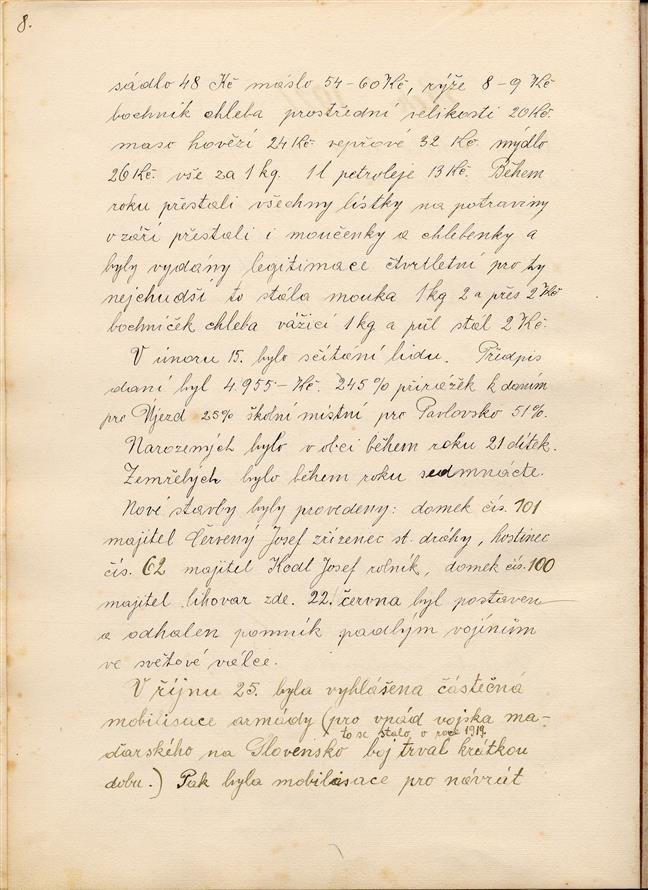 8.
sádlo 48 Kč máslo 54-60 Kč, rýže 8-9 Kč
bochník chleba prostřední velikosti 20 Kč.
maso hovězí 24 Kč vepřové 32 Kč. mýdlo
26 Kč. vše za 1 kg. 1 l petroleje 13 Kč. Během
roku přestali všechny lístky na potraviny
v září přestali i moučenky a chlebenky a
byly vydány legitimace čtvrtletní pro ty
nejchudší to stála mouka 1 kg 2 a přes 2 Kč
bochníček chleba vážicí 1 kg a půl stál 2 Kč.
V únoru 15. bylo sčítání lidu. Předpis
daní byl 4.955 - Kč. 245% přirážek k daním
pro Újezd 25% školní místní pro Pavlovsko 51%.
Narozených bylo v obci během roku 21 dítek.
Zemřelých bylo během roku sedmnácte.
Nové stavby byly provedeny: domek čís. 101
majitel Červený Josef zřízenec st. dráhy, hostinec
čís. 62 majitel Kodl Josef rolník, domek čís. 100
majitel lihovar zde. 22. června byl postaven
a odhalen pomník padlým vojínům
ve světové válce.
V říjnu 25. byla vyhlášena částečná
mobilisace armády (pro vpád vojska ma-
to se stalo o roce 1919.
ďarského na Slovensko boj trval krátkou
dobu.) Pak byla mobilisace pro návrat